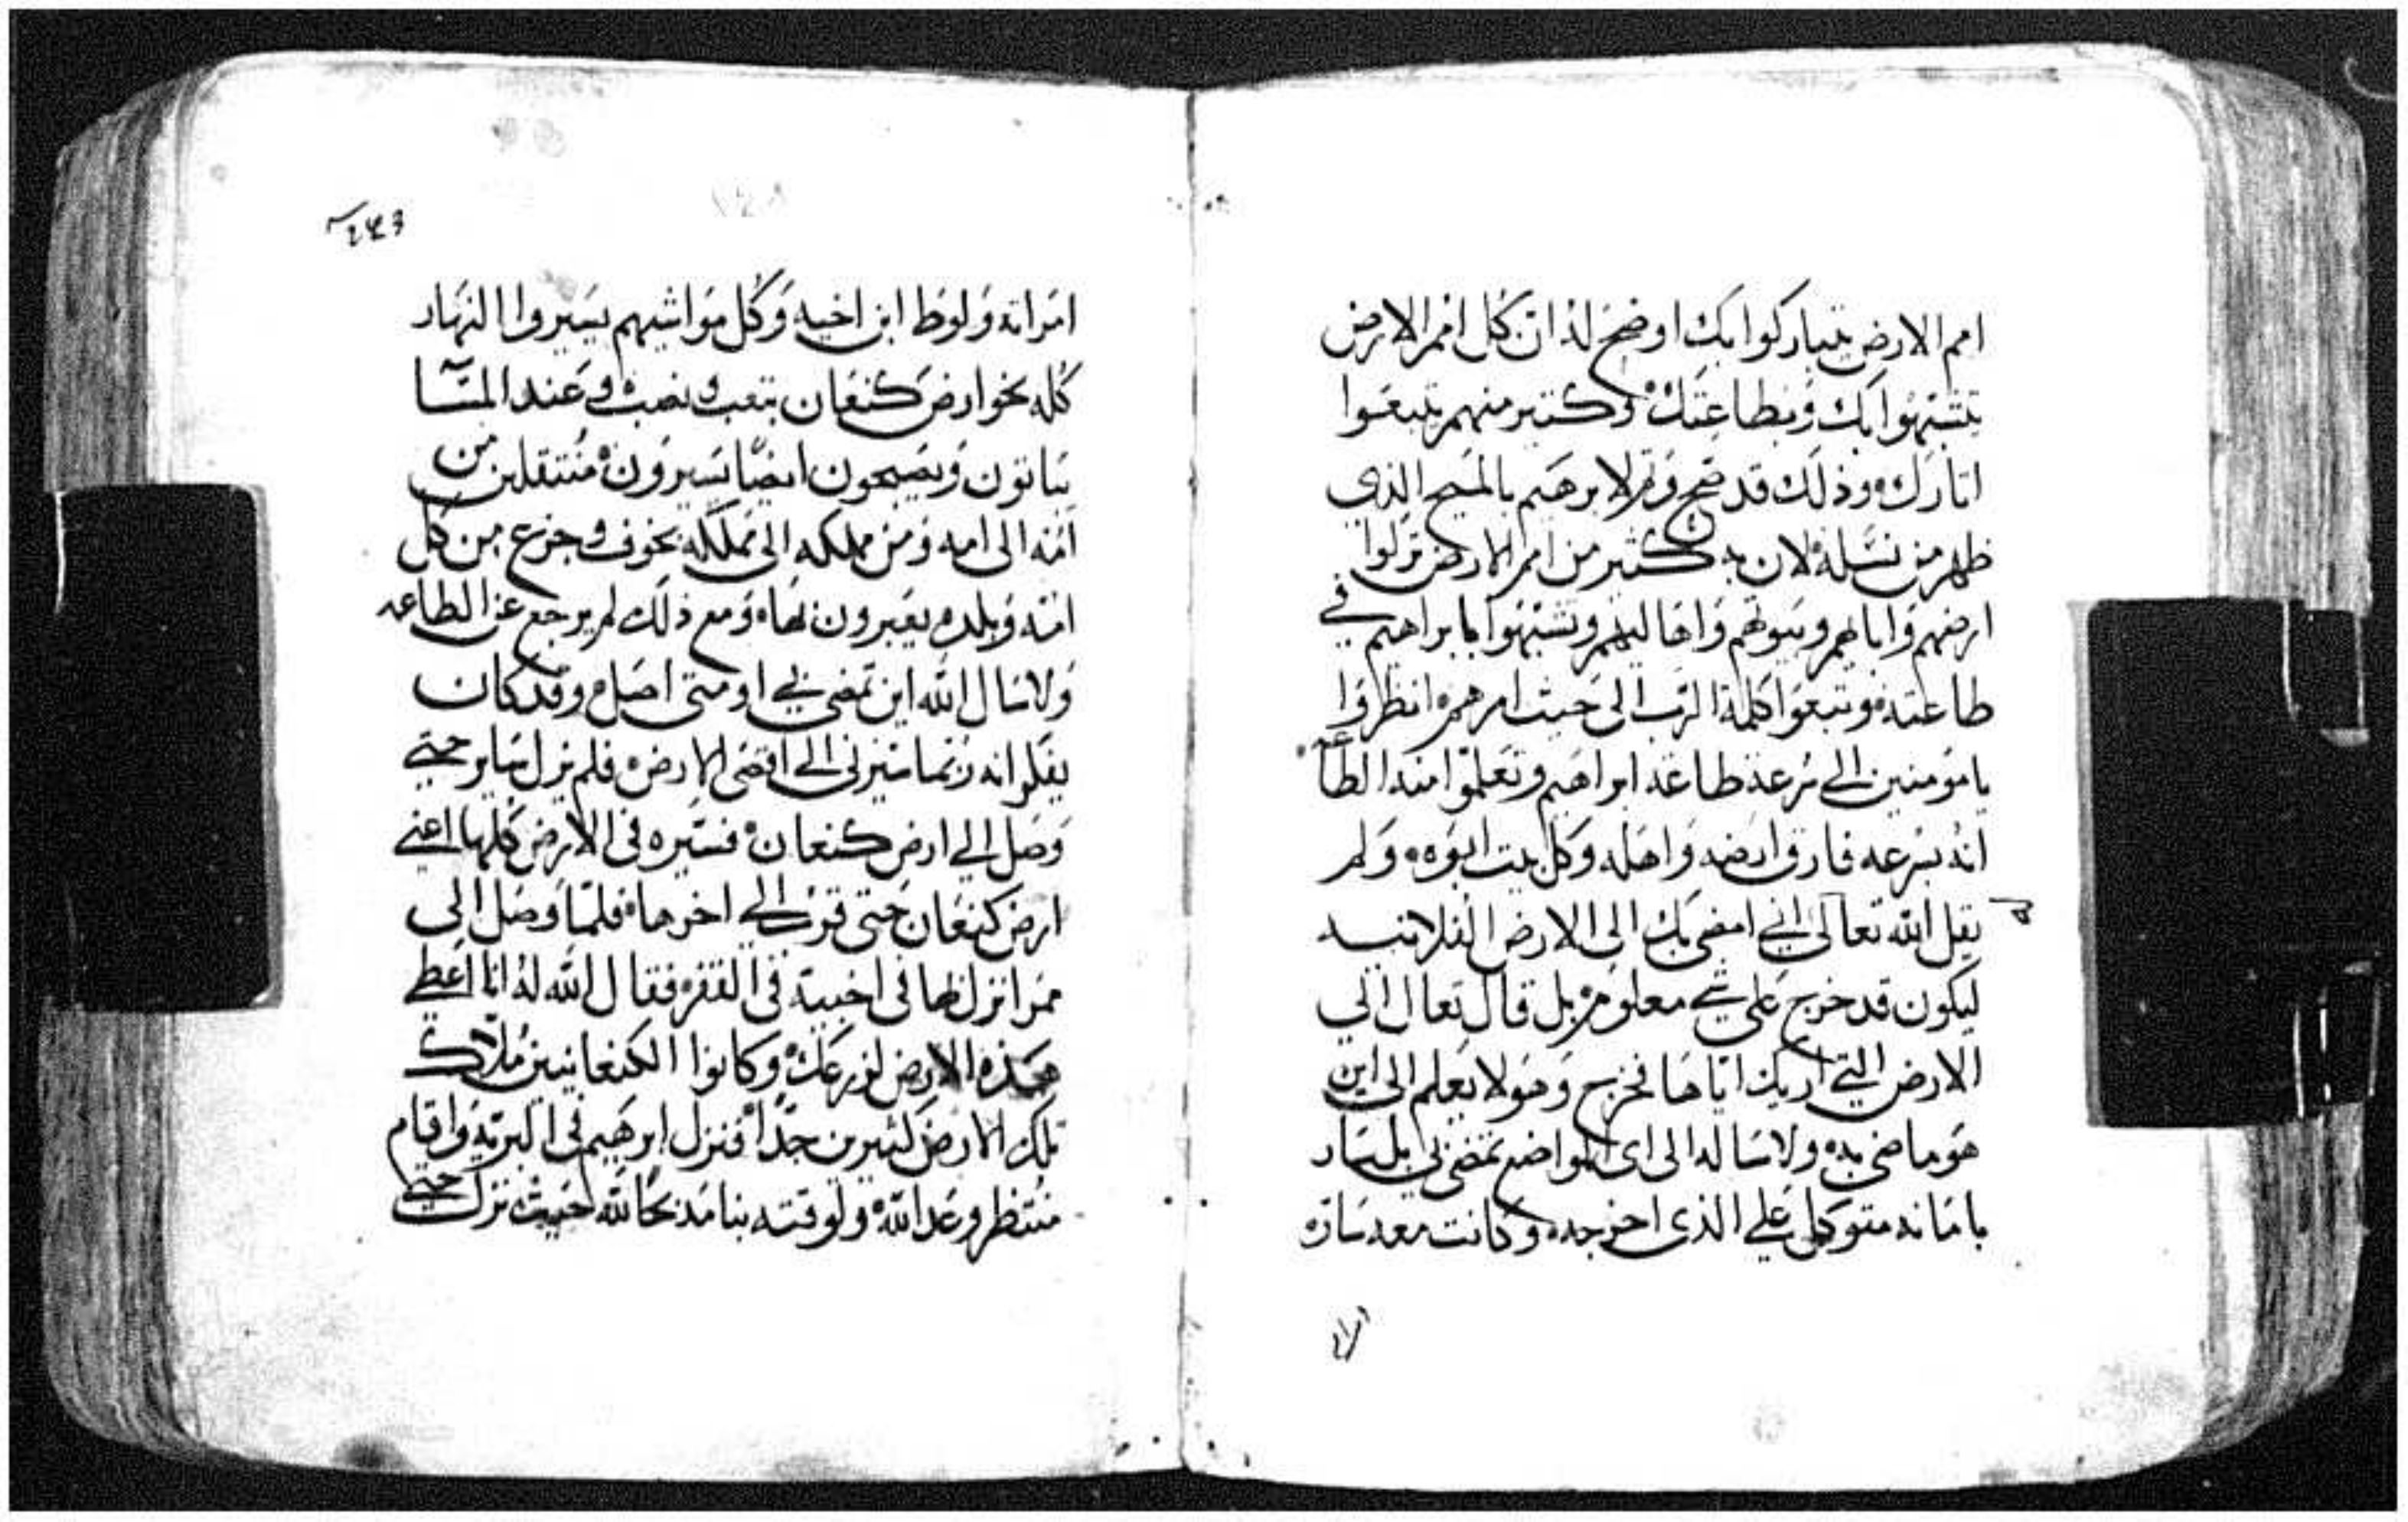 امم الارض يتباركوا بك اوضح له ان كل امم الارض
يتشبهوا بك وبطاعتك وكثير منهم يتبعوا
اثارك وذلك قد صح وتم لابرهيم بالمسيح الذي
ظهر من نسله لان به كثير من امم الارض تركوا
ارضهم واباهم وبيوتهم واهاليهم وتشبهوا بابراهيم في
طاعته وتبعوا كلمة الرب الى حيث امرهم انظروا
يا مومنين الى سرعة طاعة ابراهيم وتعلموا منه الطاعه
انه بسرعه فارق ارضه واهله وكل بيت ابوه ولم
يقل الله تعالى اني امضي بك الى الارض الفلانيه
ليكون قد خرج على شي معلوم بل قال تعال الي
الارض التي اريك اياها فخرج وهو لا يعلم الى اين
هو ماضي به ولا ساله الى اي المواضع تمضي بي بل سار
بامانه متوكل علي الذي اخرجه وكانت معه ساره
امراته ولوط ابن اخيه وكل مواشيهم يسيروا النهار
كله نحو ارض كنعان بتعب ونصب وعند المسا
يباتون ويصبحون ايضا يسيرون منتقلين من
امه الى امه ومن مملكه الى مملكه بخوف وجزع من كل
امه وبلده يعبرون بها ومع ذلك لم يرجع عن الطاعه
ولا سال الله اين تمضي بي او متى اصل وقد كان
يفكر انه ربما سيرني الى اقصى الارض فلم يزل ساير حتي
وصل الي ارض كنعان فسيره في الارض كلها اعني
ارض كنعان حتى الي اخرها فلما وصل الى
ممرا نزل بها في اخبية في القفر فقال الله له انا اعطي
هذه الارض لزرعك وكانوا الكنعانيين ملاك
تلك الارض كثيرين جدا فنزل ابرهيم في البرية واقام
منتظر وعد الله ولوقته بنا مذبحا لله حيث نزل حتي